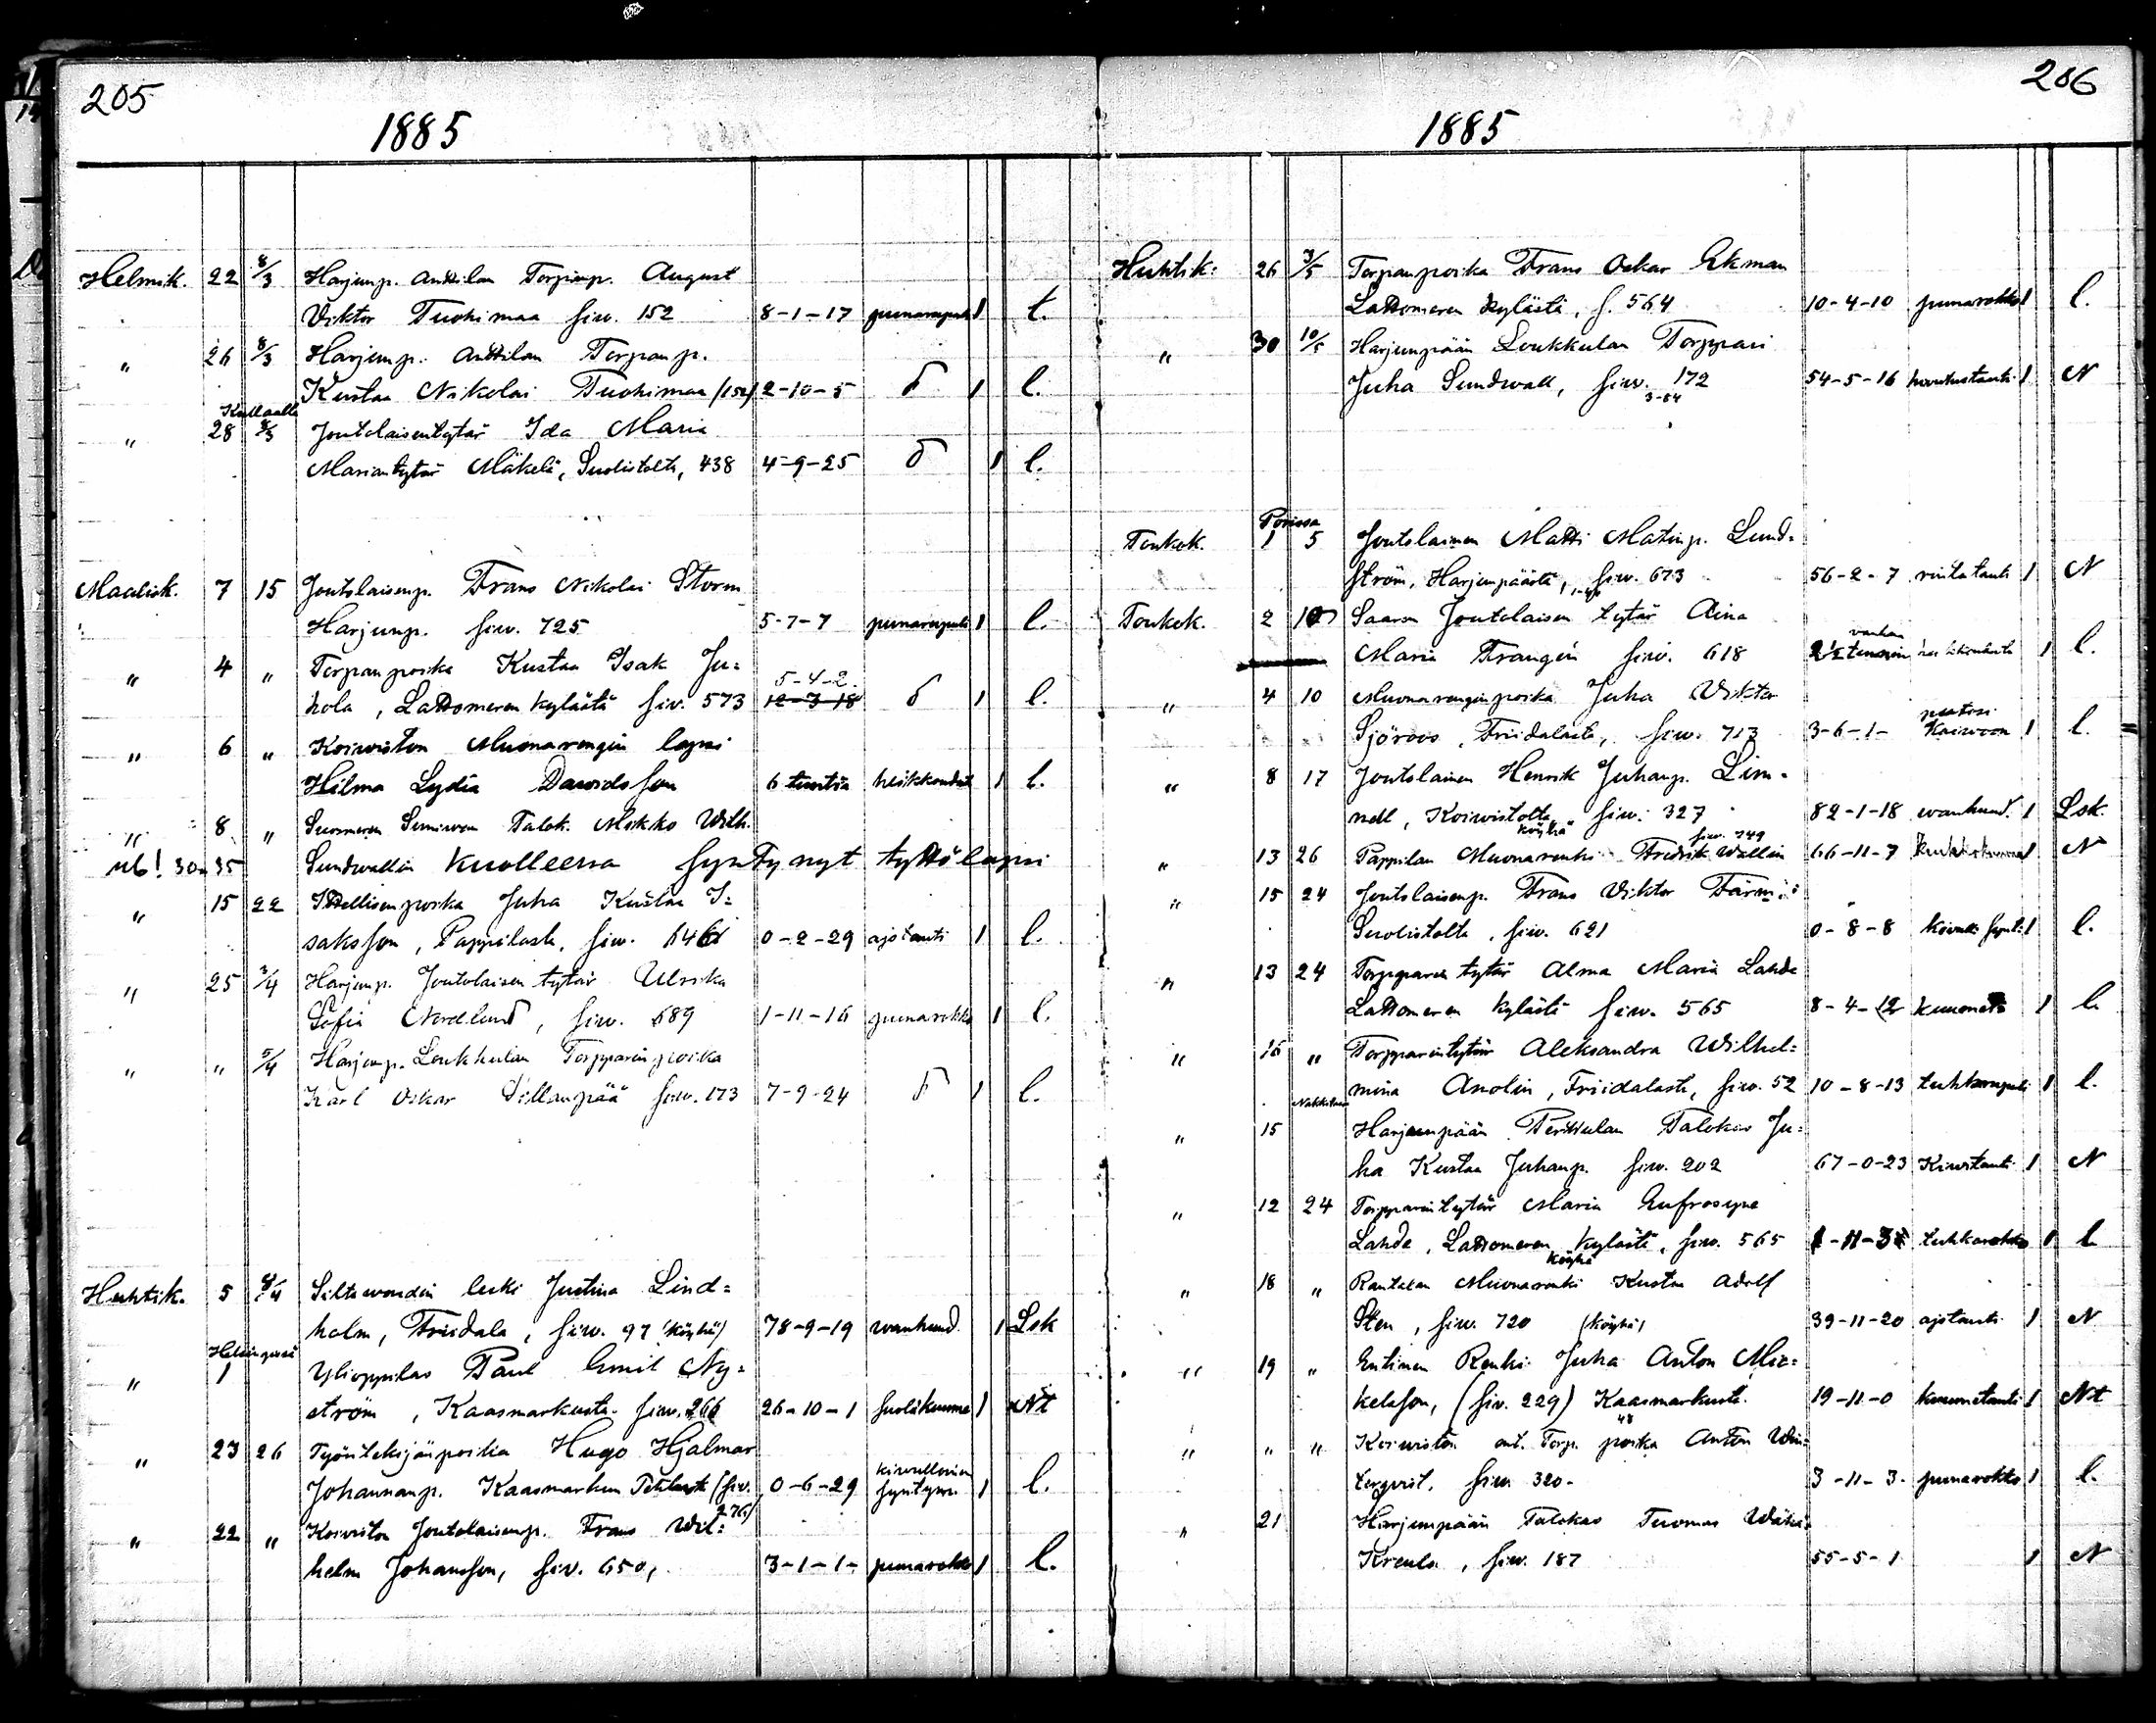 205
1885
Helmik. 22 8/3 Harjunp. Anttilan Torpanp. August
Viktor Tuohimaa siw. 152 8-1-17 punarupuli 1 l.
" 26 8/3 Harjunp. Anttilan Torpanp.
Kustaa Nikolai Tuohimaa (152) 2-10-5 1 l.
Kullaalla
" 28 8/3 Joutolaisentytär Ida Maria
Mariantytär Mäkelä, Suolistolta, 438 4-9-25 1 l.
Maalisk. 7 15 Joutolaisenp. Frans Nikolai Storm
Harjunp. siw. 725 5-7-7 punarupuli 1 l.
" 4 " Torpanpoika Kustaa Isak Ju=
hola, Lattomeren kylästä siw. 573 5-4-2. 12-3-18 1 l.
" 6 " Koiwiston Muonarengin lapsi
Hilma Lydia Dawidsson 6 tuntia heikkoudet 1 l.
" 8 " Suomeren Talok. Mikko Wilh.
Nb! 30-35 Sundwallin kuolleena syntynyt tyttölapsi
" 15 22 Itsellisenpoika Juha Kustaa I=
saksson, Pappilasta, siw. 646 0-2-29 ajotauti 1 l.
" 25 3/4 Harjunp. Joutolaisen tytär Ulrika
Sofia Nordlund, siw. 689 1-11-16 punarokko 1 l.
" " 5/4 Harjunp. Loukkulan Torpparin poika
Karl Oskar Sillanpää siw. 173 7-9-24 1 l.
Huhtik. 5 8/4 Siltawoudin leski Justina Lind=
holm, Friidala, siw. 97 (köyhä) 78-9-19 wanhuud. 1 Lsk
Helsingissä
" 1 Ylioppilas Paul Emil Ny=
ström, Kaasmarkusta. siw. 266 26-10-1 suolikuume 1 Nt
" 23 26 Työntekijänpoika Hugo Hjalmar
Johannanp. Kaasmarkun (siw. 276) 0-6-29 syntynn. 1 l.
" 22 " Koiviston Joutolaisenp. Frans Wil=
helm Johansson, siv. 650, 3-1-1- punarokko 1 l.
206
1885
Huhtik. 26 3/5 Torpanpoika Frans Oskar Ekman
Lattomeren kylästä, s. 564 10-4-10 punarokko 1 l.
" 30 10/5 Harjunpään Loukkulan Torppari
Juha Sundwall, siw. 172 54-5-16 1 N
Porissa
Toukok. 1 5 Joutolainen Matti Matinp. Lund=
ström, Harjunpäästä, siw. 673 56-2-7 rintatauti 1 N
Toukok. 2 10 Saaren Joutolaisen tytär Aina
Maria Frangén siw. 618 2½ tunnin vanha 1 l.
" 4 10 Muonarenginpoika Juha Viktor
Sjöroos, Friidalasta, siw. 713 3-6-1- putosi Kaiwoon 1 l.
" 8 17 Joutolainen Henrik Juhanp. Lin=
nell, Koiwistolta siw. 327 82-1-18 wanhuud. 1 Lsk.
köyhä
" 13 26 Pappilan Muonarenki Fredrik Wallin siw. 749 66-11-7 1 N
" 15 24 Joutolaisenp. Frans Viktor Färm
Suolistolta, siw. 621 0-8-8 1 l.
" 13 24 Torpparin tytär Alma Maria Lahde
Lattomeren kylästä siw. 565 8-4-12 1 l.
" 16 " Torpparintytär Aleksandra Wilhel=
mina Anolin, Friidalasta, siw. 52 10-8-13 tuhkarupuli 1 l.
Nakkilassa
" 15 Harjunpään Perttulan Talokas Ju=
ha Kustaa Juhanp. siw. 202 67-0-23 Kiwitauti 1 N
" 12 24 Torpparintytär Maria Eufrosyne
Lahde, Lattomeren kylästä, siw. 565 tuhkarokko 1 l
köyhä
" 18 " Rantalan Muonarenki Kustaa Adolf
Sten, siw. 720 (köyhä) 39-11-20 ajotauti 1 N
" 19 " Entinen Renki Juha Anton Mic=
kelsson, (siv. 229) Kaasmarkusta. 19-11-0 kuumetauti 1 Nt
" " " Koiwiston ent. Torp. poika Anton Win=
terqvist. siw. 320- 3-11-3. punarokko 1 l.
" 21 Harjunpään Talokas Tuomas Wähä-
Kreula, siw. 187 55-5-1 1 N